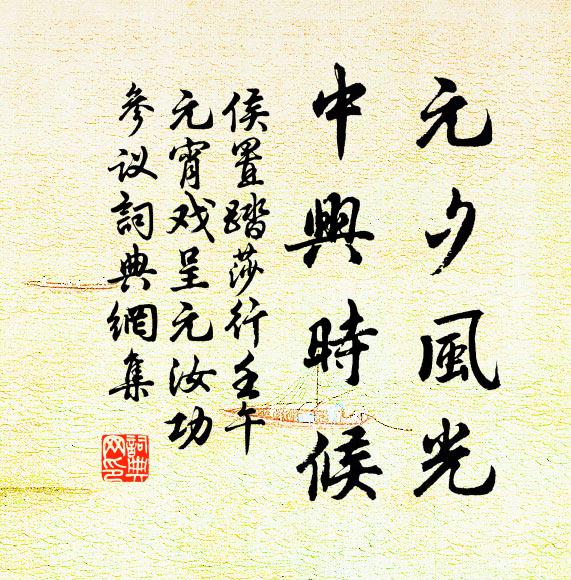 元夕風光
中興時候
侯置踏莎行壬午
元宵戏呈元汝功
參议詞典網集
詞典网印